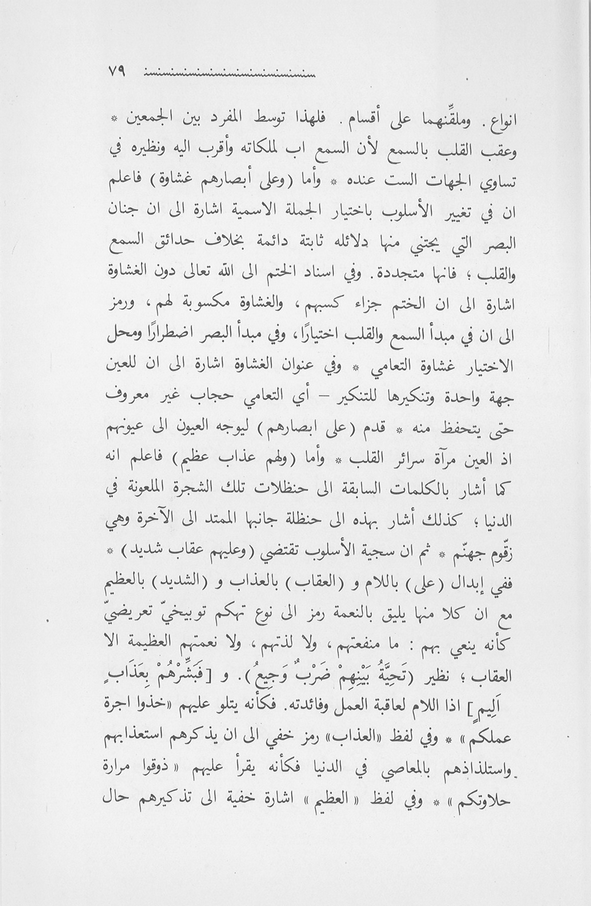 ٧٩
انواع. وملقِّنهما على أقسام. فلهذا توسط المفرد بين الجمعين *
وعقب القلب بالسمع لأن السمع اب لملكاته وأقرب اليه ونظيره في
تساوي الجهات الست عنده * وأما (وعلى أبصارهم غشاوة) فاعلم
ان في تغيير الأسلوب باختيار الجملة الاسمية اشارة الى ان جنان
البصر التي يجتني منها دلائله ثابتة دائمة بخلاف حدائق السمع
والقلب ؛ فانها متجددة. وفي اسناد الختم الى الله تعالى دون الغشاوة
اشارة الى ان الختم جزاء كسبهم، والغشاوة مكسوبة لهم، ورمز
الى ان في مبدأ السمع والقلب اختيارًا، وفي مبدأ البصر اضطرارًا ومحل
الاختيار غشاوة التعامي * وفي عنوان الغشاوة اشارة الى ان للعين
جهة واحدة وتنكيرها للتنكير – أي التعامي حجاب غير معروف
حتى يتحفظ منه * قدم (على ابصارهم) ليوجه العيون الى عيونهم
اذ العين مرآة سرائر القلب * وأما (ولهم عذاب عظيم) فاعلم انه
كما أشار بالكلمات السابقة الى حنظلات تلك الشجرة الملعونة في
الدنيا ؛ كذلك أشار بهذه الى حنظلة جانبها الممتد الى الآخرة وهي
زقّوم جهنّم * ثم ان سجية الأسلوب تقتضي (وعليهم عقاب شديد) *
ففي إبدال (على) باللام و (العقاب) بالعذاب و (الشديد) بالعظيم
مع ان كلا منها يليق بالنعمة رمز الى نوع تهكم توبيخيّ تعريضيّ
كأنه ينعي بهم : ما منفعتهم، ولا لذتهم، ولا نعمتهم العظيمة الا
العقاب ؛ نظير (تَحِيَّةُ بَيْنِهِمْ ضَرْبٌ وَجِيعُ). و [فَبَشِّرْهُمْ بِعَذَابٍ
اَلِيمٍ] اذا اللام لعاقبة العمل وفائدته. فكأنه يتلو عليهم «خذوا اجرة
عملكم» * وفي لفظ «العذاب» رمز خفي الى ان يذكرهم استعذابهم
واستلذاذهم بالمعاصي في الدنيا فكأنه يقرأ عليهم «ذوقوا مرارة
حلاوتكم» * وفي لفظ «العظيم» اشارة خفية الى تذكيرهم حال